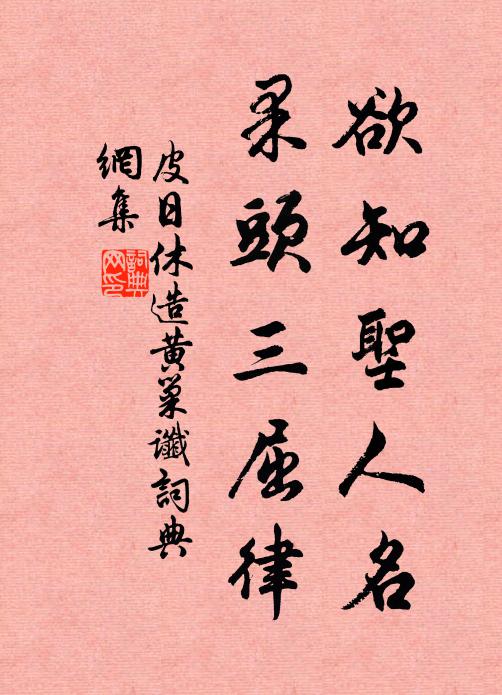 欲知聖人名
果頭三屈律
皮日休造黄巢讖詞典
網集
詞典
网印